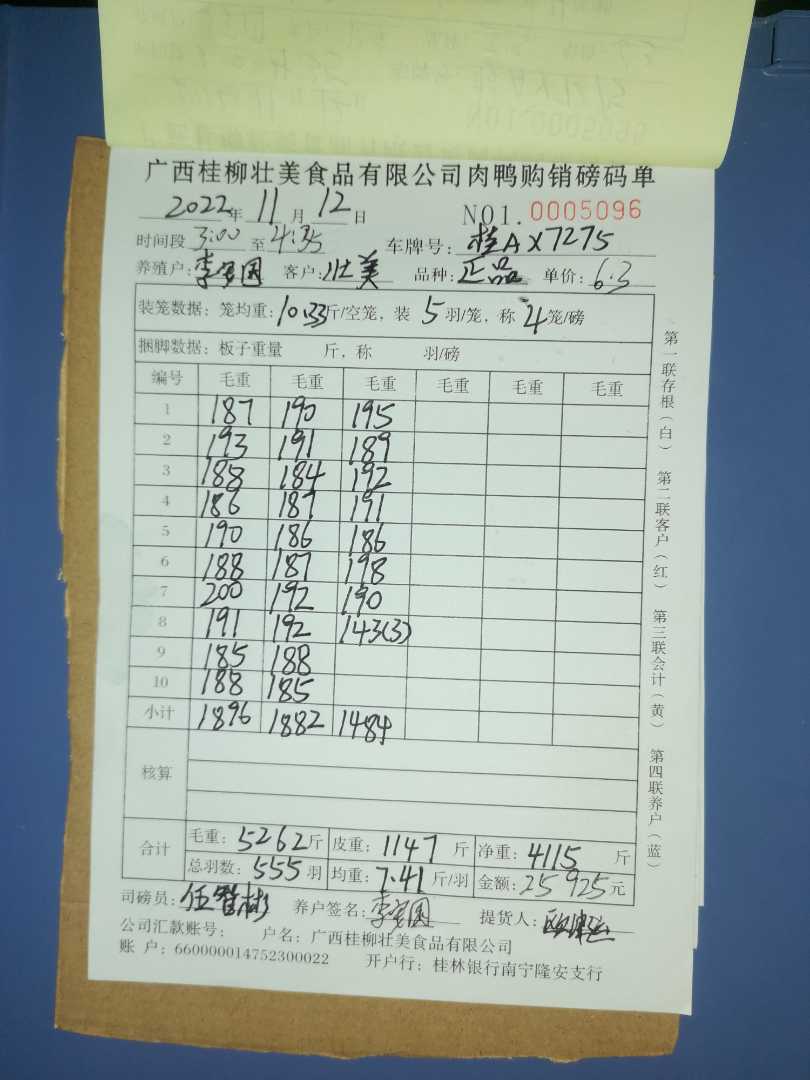 广西桂柳壮美食品有限公司肉鸭购销磅码单
2022年 11 月 12 日 NO1. 0005096
时间段 3:00 至 4:35 车牌号: 桂AX7275
养殖户: 客户: 壮美 品种: 正品 单价: 6.3
装笼数据: 笼均重: 10.33斤/空笼, 装 5 羽/笼, 称 4笼/磅
捆脚数据: 板子重量 斤, 称 羽/磅
编号 毛重 毛重 毛重 毛重 毛重 毛重
1 187 190 195
2 193 191 189
3 188 184 192
4 186 187 191
5 190 186 186
6 188 187 198
7 200 192 190
8 191 192 143(3)
9 185 188
10 188 185
小计 1896 1882 1484
核算
合计 毛重: 5262斤 皮重: 1147 斤 净重: 4115 斤
总羽数: 555 羽 均重: 7.41 斤/羽 金额: 25925元
司磅员: 任智彬 养户签名: 提货人:
公司汇款账号: 户名: 广西桂柳壮美食品有限公司
账 户: 660000014752300022 开户行: 桂林银行南宁隆安支行
第一联存根(白) 第二联客户(红) 第三联会计(黄) 第四联养户(蓝)